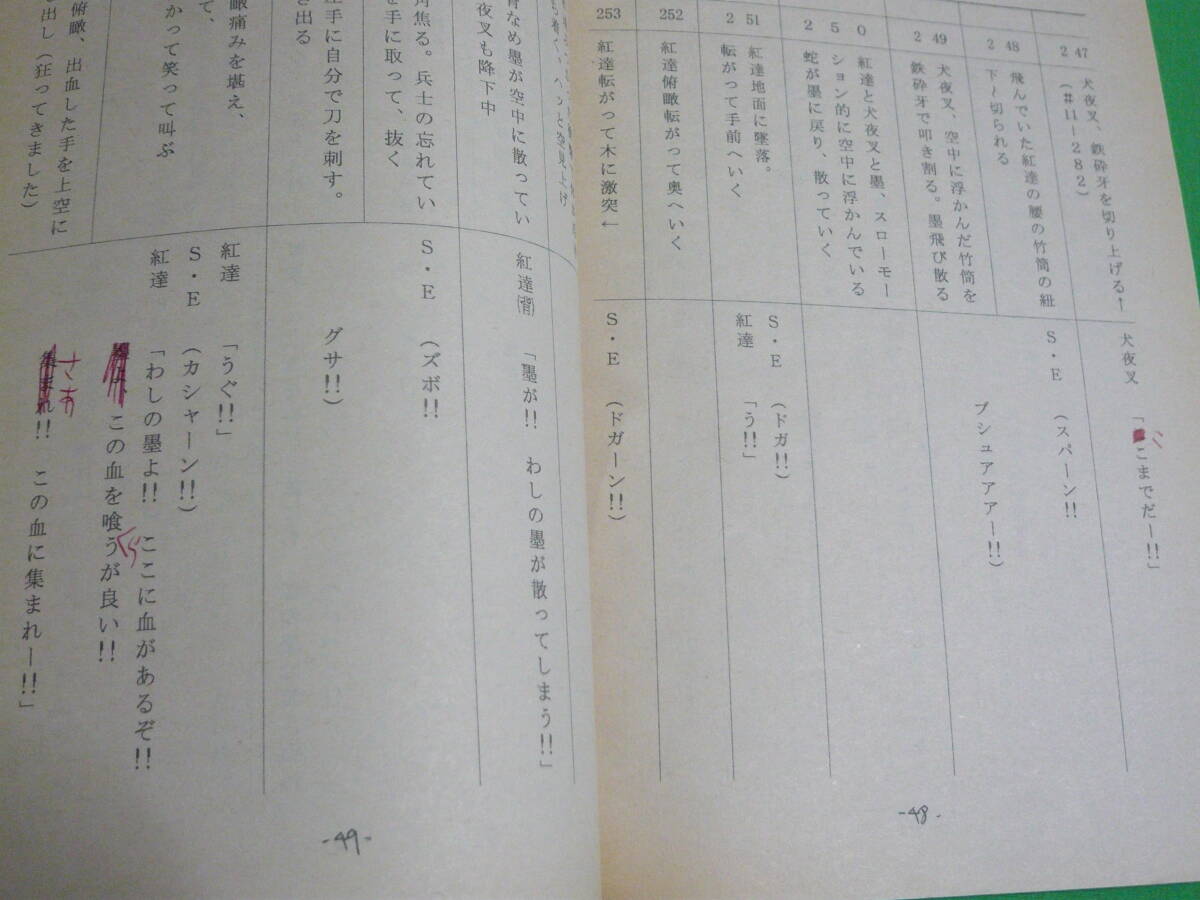 ２４７
犬夜叉、鉄砕牙を切り上げる↑
（＃１１－２８２）
犬夜叉
「ここまでだー!!」
２４８
飛んでいた紅達の腰の竹筒の紐
下～切られる
Ｓ・Ｅ
（スパーン!!
２４９
犬夜叉、空中に浮かんだ竹筒を
鉄砕牙で叩き割る。墨飛び散る
ブシュアアアー!!）
２５０
紅達と犬夜叉と墨、スローモー
ション的に空中に浮かんでいる
蛇が墨に戻り、散っていく
２５１
紅達地面に墜落。
転がって手前へいく
Ｓ・Ｅ
（ドガ!!）
紅達
「う!!」
252
紅達俯瞰転がって奥へいく
253
紅達転がって木に激突←
Ｓ・Ｅ
（ドガーン!!）
-48-
なめ墨が空中に散ってい
夜叉も降下中
紅達(背)
「墨が!! わしの墨が散ってしまう!!」
焦る。兵士の忘れてい
を手に取って、抜く
Ｓ・Ｅ
（ズボ!!
手に自分で刀を刺す。
き出る
グサ!!）
眼痛みを堪え、
て、
かって笑って叫ぶ
紅達
「うぐ!!」
Ｓ・Ｅ
（カシャーン!!）
俯瞰、出血した手を上空に
出し（狂ってきました）
紅達
「わしの墨よ!! ここに血があるぞ!!
この血を喰うが良い!!
くら
集まれ!! この血に集まれー!!」
さあ
-49-